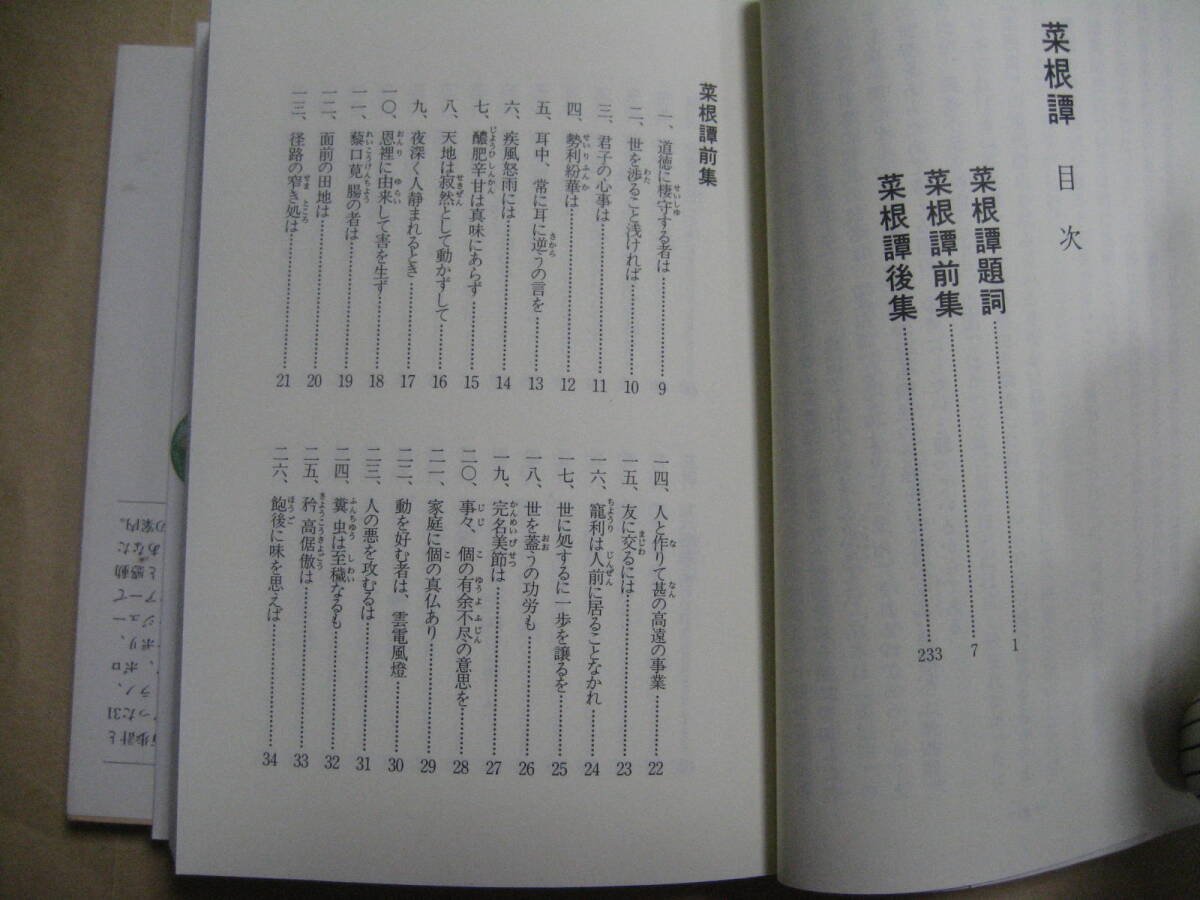 菜根譚 目次
菜根譚題詞……1
菜根譚前集……7
菜根譚後集……233
菜根譚前集
一、道徳に棲守する者は……9
二、世を渉ること浅ければ……10
三、君子の心事は……11
四、勢利紛華は……12
五、耳中、常に耳に逆うの言を……13
六、疾風怒雨には……14
七、醲肥辛甘は真味にあらず……15
八、天地は寂然として動かずして……16
九、夜深く人静まれるとき……17
一〇、恩裡に由来して害を生ず……18
一一、藜口莧腸の者は……19
一二、面前の田地は……20
一三、径路の窄き処は……21
一四、人と作りて甚の高遠の事業……22
一五、友に交るには……23
一六、寵利は人前に居ることなかれ……24
一七、世に処するに一歩を譲るを……25
一八、世を蓋うの功労も……26
一九、完名美節は……27
二〇、事々、個の有余不尽の意思を……28
二一、家庭に個の真仏あり……29
二二、動を好む者は、雲電風燈……30
二三、人の悪を攻むるは……31
二四、糞虫は至穢なるも……32
二五、矜高倨傲は……33
二六、飽後に味を思えば……34